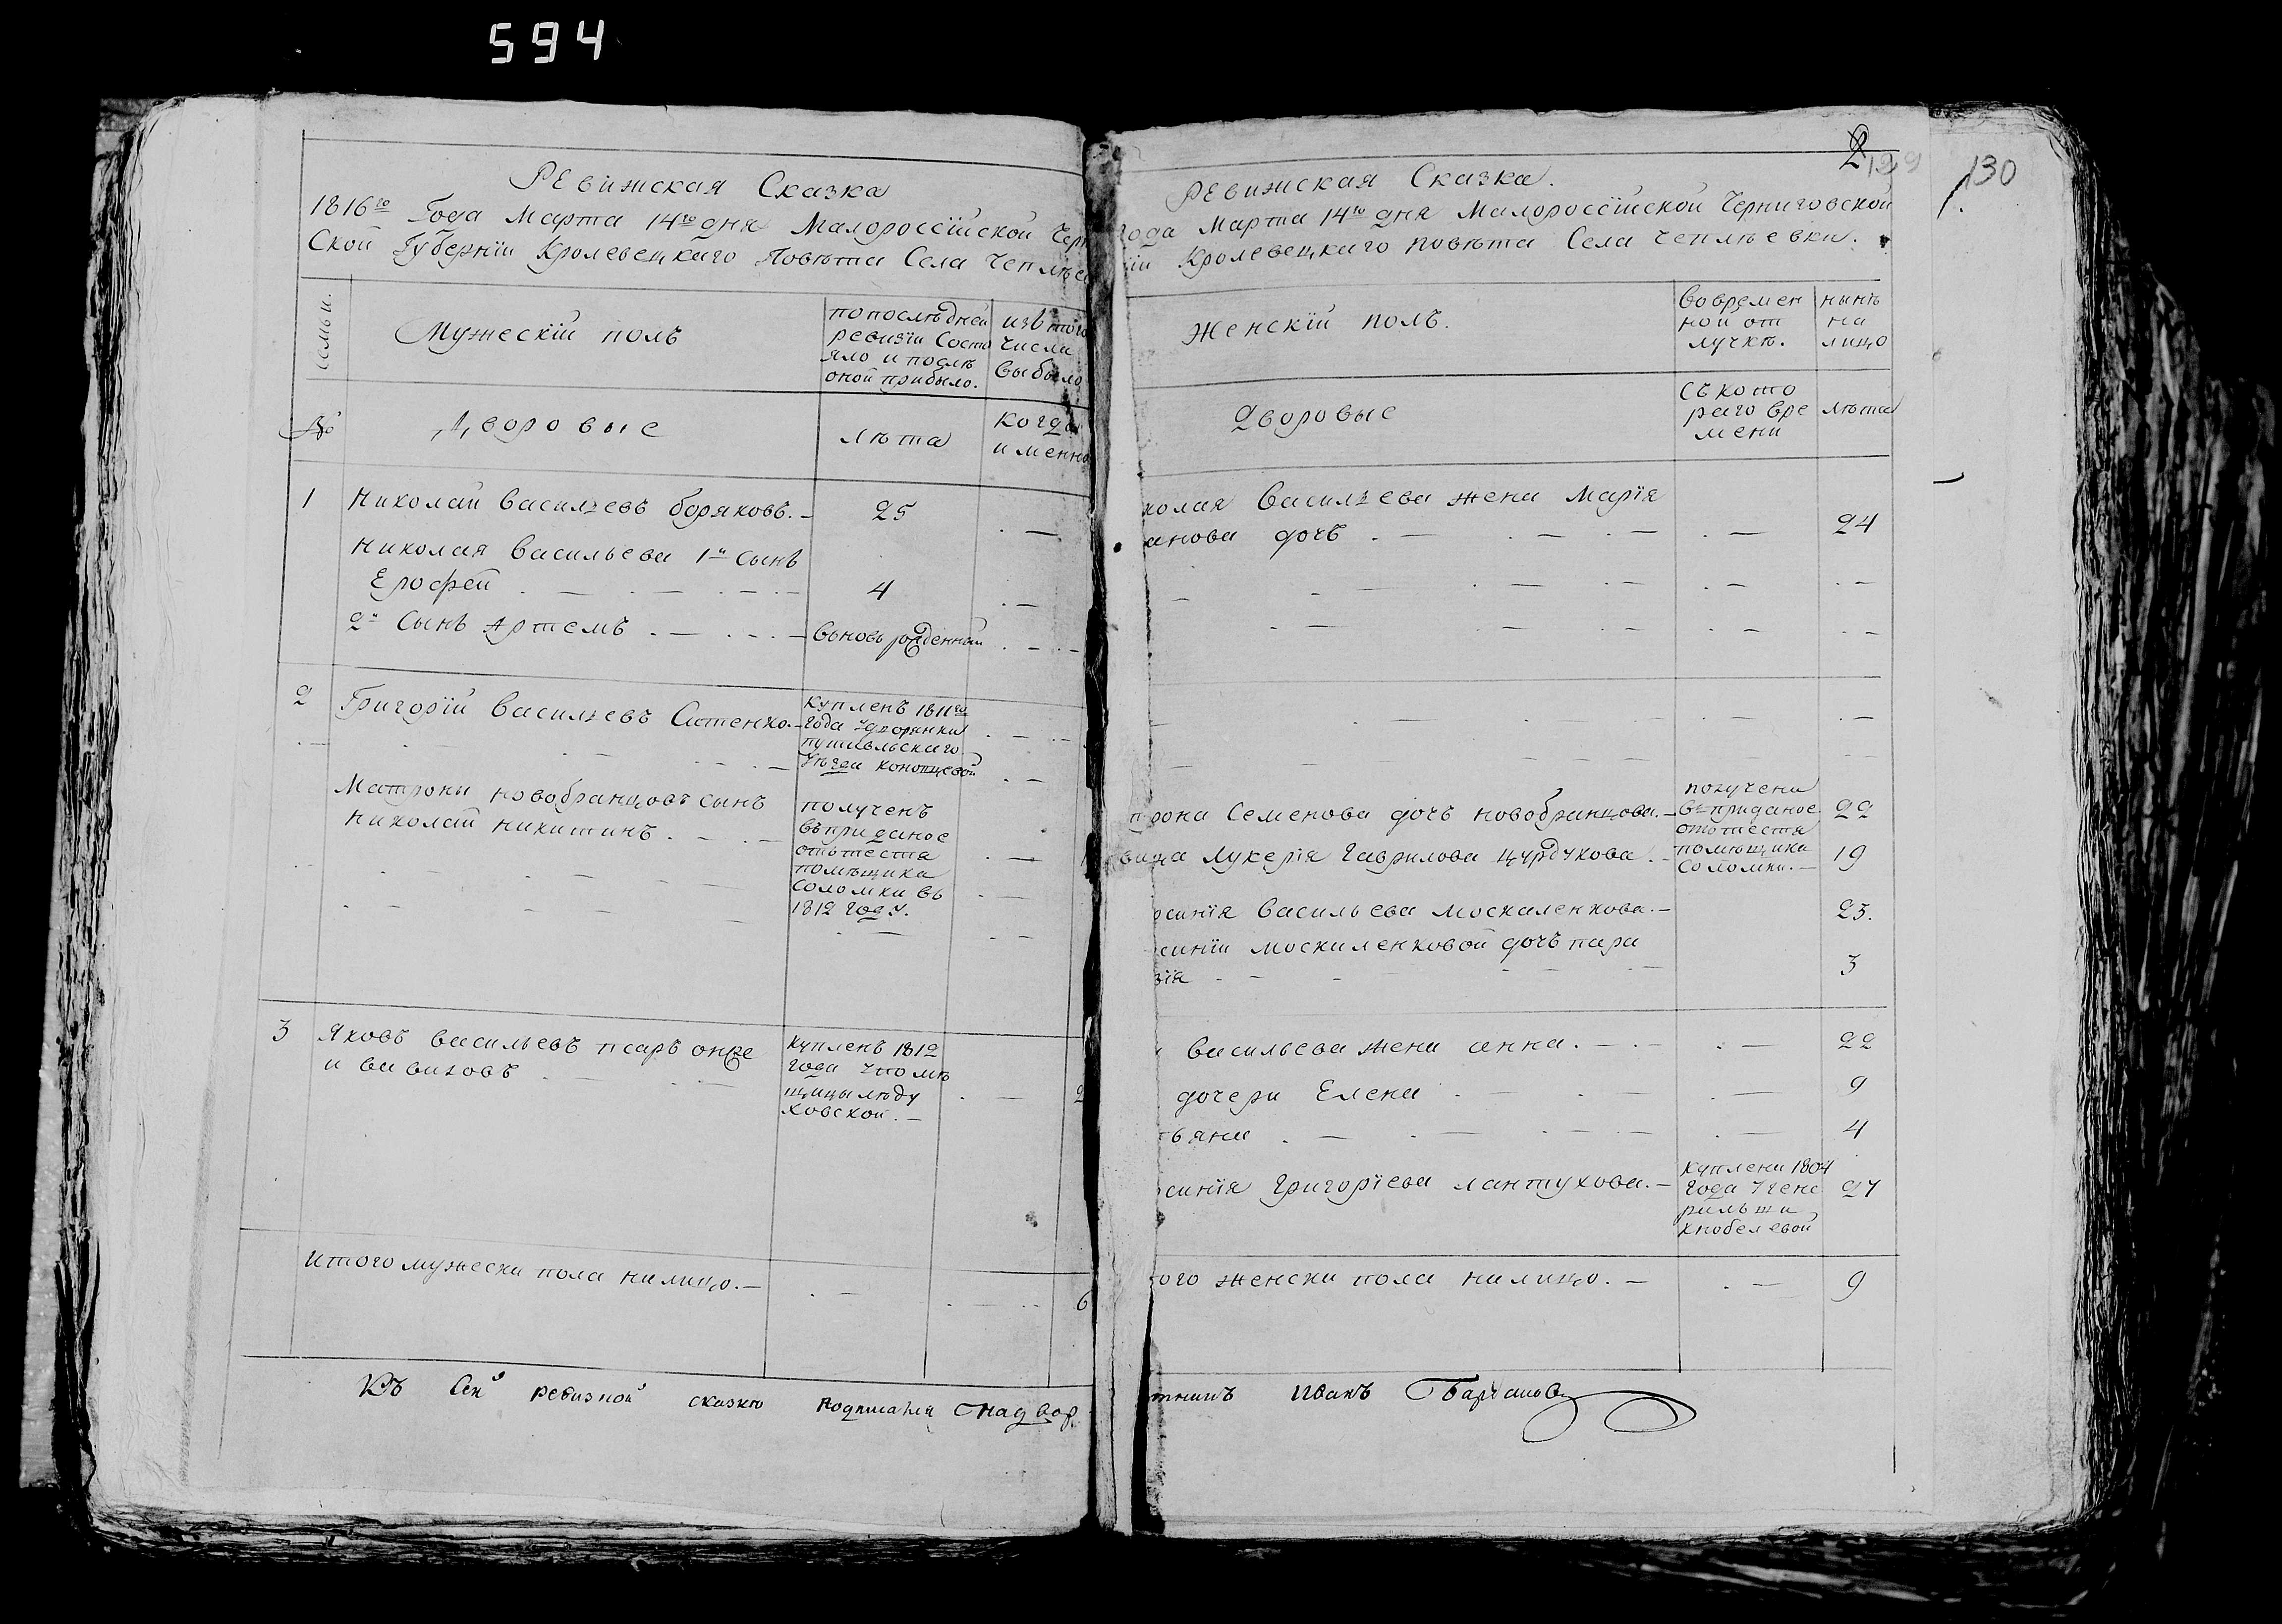 594
Ревижская Сказка
1816го Года Марта 14го дня Малороссійской Черн
Ской Губерніи Кролевецкаго Повѣта Села Чеплѣев
семьи.
Мужескій полъ
по послѣдней
ревизіи Состо
яло и послѣ
оной прибыло.
изъ того
числа
выбыло
№
Дворовые
лѣта
когда
именно
1
Николай Васильевъ боряковъ. —
25
Николая Васильева 1й сынъ
Ерофей
4
2й Сынъ Артемъ
вьновь рожденный
2
Григорій Васильевъ
Купленъ 1811го
Года
путивльскаго
Матроны новобранцовъ сынъ
Николай Никитинъ
полученъ
въ приданое
отъ тестя
помѣщика
Соломки въ
1812 году.
1
3
Яковъ Васильевъ псаръ онже
и
Купленъ 1812
Года у помѣ
щицы
ховской. —
2
Итого мужеска пола налицо. —
6
Къ Сей ревизной сказкѣ подписался Надвор
2
129
130
Ревижская Сказка.
года Марта 14го дня Малороссійской Черниговской
іи Кролевецкаго повѣта Села Чеплѣевки.
Женскій полъ.
во времен
ной от
лучкѣ.
нынѣ
на
лицо
Дворовые
Съ кото
раго вре
мени
лѣта
колая Васильева жена Марія
анова дочь
24
рона Семенова дочь новобранцова. —
получена
въ приданое
отъ тестя
помѣщика
Соломки. —
22
вица Лукерія Гаврилова
19
синія Васильева москаленкова. —
23.
синіи москаленковой дочь пара
3
Васильева жена анна. —
22
дочери Елена
9
тьяна
4
синія Григоріева лантухова. —
Куплена 1804
Года у гене
ральши
Кнобелевой
27
ого женска пола налицо. —
9
тникъ Иванъ